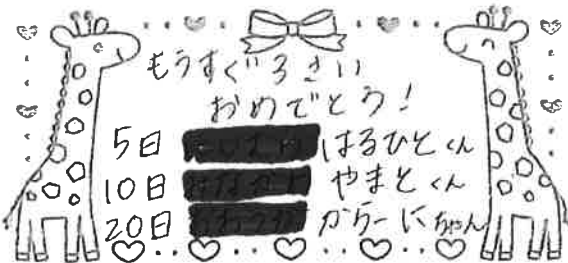 もうすぐ3さい
おめでとう!
5日 はるひとくん
10日 やまとくん
20日 からーにちゃん